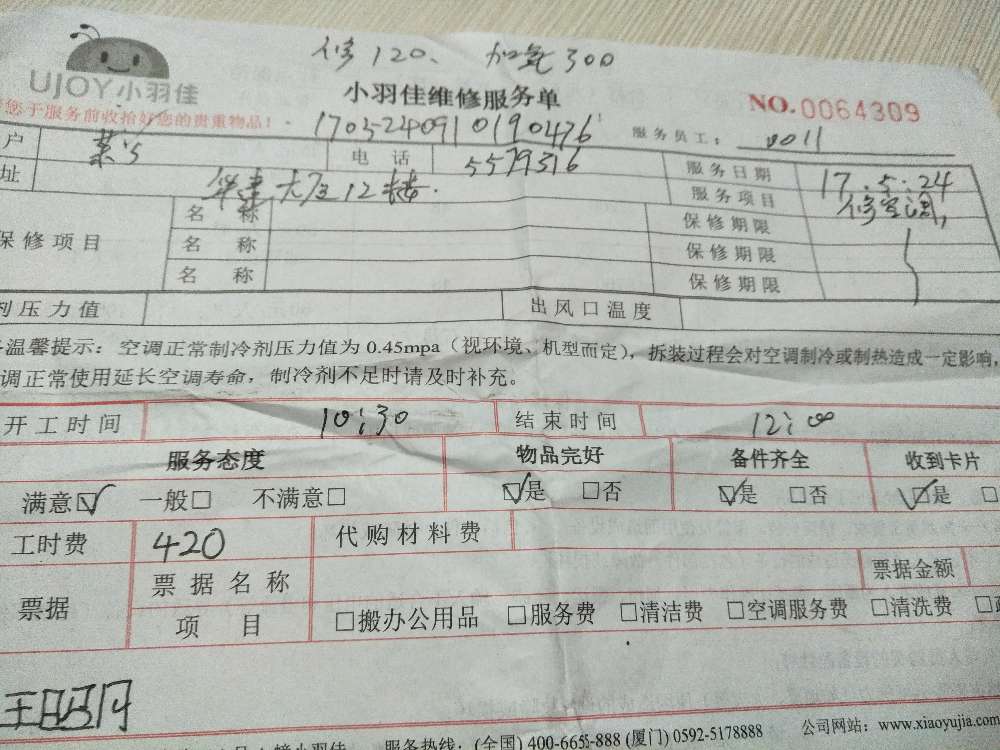 修120、 加氧300
UJOY小羽佳
小羽佳维修服务单
NO.0064309
您于服务前收拾好您的贵重物品!
1705240910190476
服务员工: 0011
户 电话 5579316 服务日期 17.5.24
址 华建大厦12楼. 服务项目 修空调,
保修项目 名称 保修期限
名称 保修期限
名称 保修期限
剂压力值 出风口温度
温馨提示:空调正常制冷剂压力值为 0.45mpa(视环境、机型而定),拆装过程会对空调制冷或制热造成一定影响,
调正常使用延长空调寿命,制冷剂不足时请及时补充。
开工时间 10:30 结束时间 12:00
服务态度 物品完好 备件齐全 收到卡片
满意☑ 一般□ 不满意□ ☑是 □否 ☑是 □否 ☑是 □
工时费 420 代购材料费
票据 票据名称 票据金额
项目 □搬办公用品 □服务费 □清洁费 □空调服务费 □清洗费 □
服务热线:(全国) 400-6655-888 (厦门) 0592-5178888 公司网站:www.xiaoyujia.com